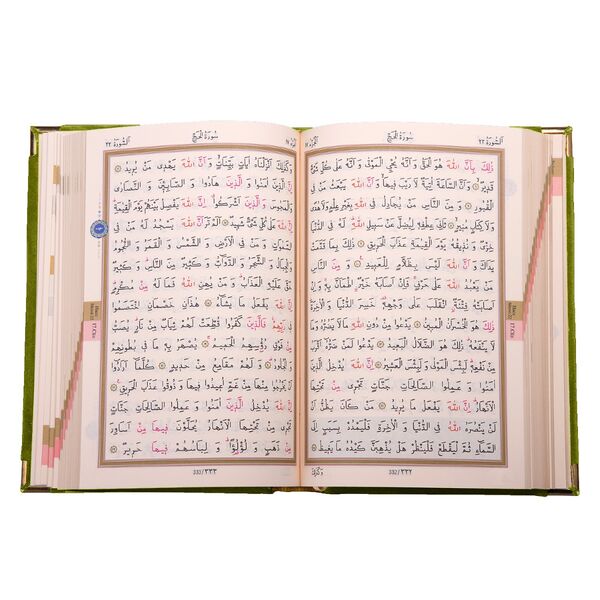 اَلسُّورَةُ ٢٢
سُورَةُ الْحَجِّ
ذٰلِكَ بِاَنَّ اللّٰهَ هُوَ الْحَقُّ وَ اَنَّهُ يُحْيِ الْمَوْتٰى وَ اَنَّهُ عَلٰى كُلِّ شَىْءٍ
قَدِيرٌ وَ اَنَّ السَّاعَةَ اٰتِيَةٌ لَا رَيْبَ فِيهَا وَ اَنَّ اللّٰهَ يَبْعَثُ مَنْ فِى
الْقُبُورِ وَ مِنَ النَّاسِ مَنْ يُجَادِلُ فِى اللّٰهِ بِغَيْرِ عِلْمٍ وَلَا هُدًى
وَلَا كِتَابٍ مُنِيرٍ ثَانِىَ عِطْفِهِ لِيُضِلَّ عَنْ سَبِيلِ اللّٰهِ لَهُ فِى الدُّنْيَا
خِزْىٌ وَ نُذِيقُهُ يَوْمَ الْقِيٰمَةِ عَذَابَ الْحَرِيقِ ذٰلِكَ بِمَا قَدَّمَتْ
يَدَاكَ وَ اَنَّ اللّٰهَ لَيْسَ بِظَلَّامٍ لِلْعَبِيدِ وَ مِنَ النَّاسِ مَنْ يَعْبُدُ
اللّٰهَ عَلٰى حَرْفٍ فَاِنْ اَصَابَهُ خَيْرٌ اطْمَاَنَّ بِهِ وَ اِنْ
اَصَابَتْهُ فِتْنَةٌ انْقَلَبَ عَلٰى وَجْهِهِ خَسِرَ الدُّنْيَا وَ الْاٰخِرَةَ
ذٰلِكَ هُوَ الْخُسْرَانُ الْمُبِينُ يَدْعُوا مِنْ دُونِ اللّٰهِ مَا لَا يَضُرُّهُ وَمَا
لَا يَنْفَعُهُ ذٰلِكَ هُوَ الضَّلَالُ الْبَعِيدُ يَدْعُوا لَمَنْ ضَرُّهُ اَقْرَبُ
مِنْ نَفْعِهِ لَبِئْسَ الْمَوْلٰى وَ لَبِئْسَ الْعَشِيرُ اِنَّ اللّٰهَ يُدْخِلُ
الَّذِينَ اٰمَنُوا وَ عَمِلُوا الصَّالِحَاتِ جَنَّاتٍ تَجْرِى مِنْ تَحْتِهَا
الْاَنْهَارُ اِنَّ اللّٰهَ يَفْعَلُ مَا يُرِيدُ مَنْ كَانَ يَظُنُّ اَنْ
لَنْ يَنْصُرَهُ اللّٰهُ فِى الدُّنْيَا وَ الْاٰخِرَةِ فَلْيَمْدُدْ بِسَبَبٍ اِلَى
السَّمَاءِ ثُمَّ لْيَقْطَعْ فَلْيَنْظُرْ هَلْ يُذْهِبَنَّ كَيْدُهُ مَا يَغِيظُ
332/٣٣٢
وَكَذٰلِكَ
سُورَةُ الْحَجِّ
اَلسُّورَةُ ٢٢
وَ كَذٰلِكَ اَنْزَلْنَاهُ اٰيَاتٍ بَيِّنَاتٍ وَ اَنَّ اللّٰهَ يَهْدِى مَنْ يُرِيدُ
اِنَّ الَّذِينَ اٰمَنُوا وَ الَّذِينَ هَادُوا وَ الصَّابِئِينَ وَ النَّصَارٰى
وَ الْمَجُوسَ وَ الَّذِينَ اَشْرَكُوا اِنَّ اللّٰهَ يَفْصِلُ بَيْنَهُمْ يَوْمَ الْقِيٰمَةِ
اِنَّ اللّٰهَ عَلٰى كُلِّ شَىْءٍ شَهِيدٌ اَلَمْ تَرَ اَنَّ اللّٰهَ يَسْجُدُ لَهُ مَنْ فِى
السَّمٰوَاتِ وَ مَنْ فِى الْاَرْضِ وَ الشَّمْسُ وَ الْقَمَرُ وَ النُّجُومُ
وَ الْجِبَالُ وَ الشَّجَرُ وَ الدَّوَابُّ وَ كَثِيرٌ مِنَ النَّاسِ وَ كَثِيرٌ
حَقَّ عَلَيْهِ الْعَذَابُ وَ مَنْ يُهِنِ اللّٰهُ فَمَا لَهُ مِنْ مُكْرِمٍ
اِنَّ اللّٰهَ يَفْعَلُ مَا يَشَاءُ هٰذَانِ خَصْمَانِ اخْتَصَمُوا
فِى رَبِّهِمْ فَالَّذِينَ كَفَرُوا قُطِّعَتْ لَهُمْ ثِيَابٌ مِنْ نَارٍ يُصَبُّ
مِنْ فَوْقِ رُؤُسِهِمُ الْحَمِيمُ يُصْهَرُ بِهِ مَا فِى بُطُونِهِمْ
وَ الْجُلُودُ وَ لَهُمْ مَقَامِعُ مِنْ حَدِيدٍ كُلَّمَا اَرَادُوا
اَنْ يَخْرُجُوا مِنْهَا مِنْ غَمٍّ اُعِيدُوا فِيهَا وَ ذُوقُوا عَذَابَ الْحَرِيقِ
اِنَّ اللّٰهَ يُدْخِلُ الَّذِينَ اٰمَنُوا وَ عَمِلُوا الصَّالِحَاتِ جَنَّاتٍ
تَجْرِى مِنْ تَحْتِهَا الْاَنْهَارُ يُحَلَّوْنَ فِيهَا مِنْ اَسَاوِرَ
مِنْ ذَهَبٍ وَ لُؤْلُؤًا وَ لِبَاسُهُمْ فِيهَا حَرِيرٌ
333/٣٣٣